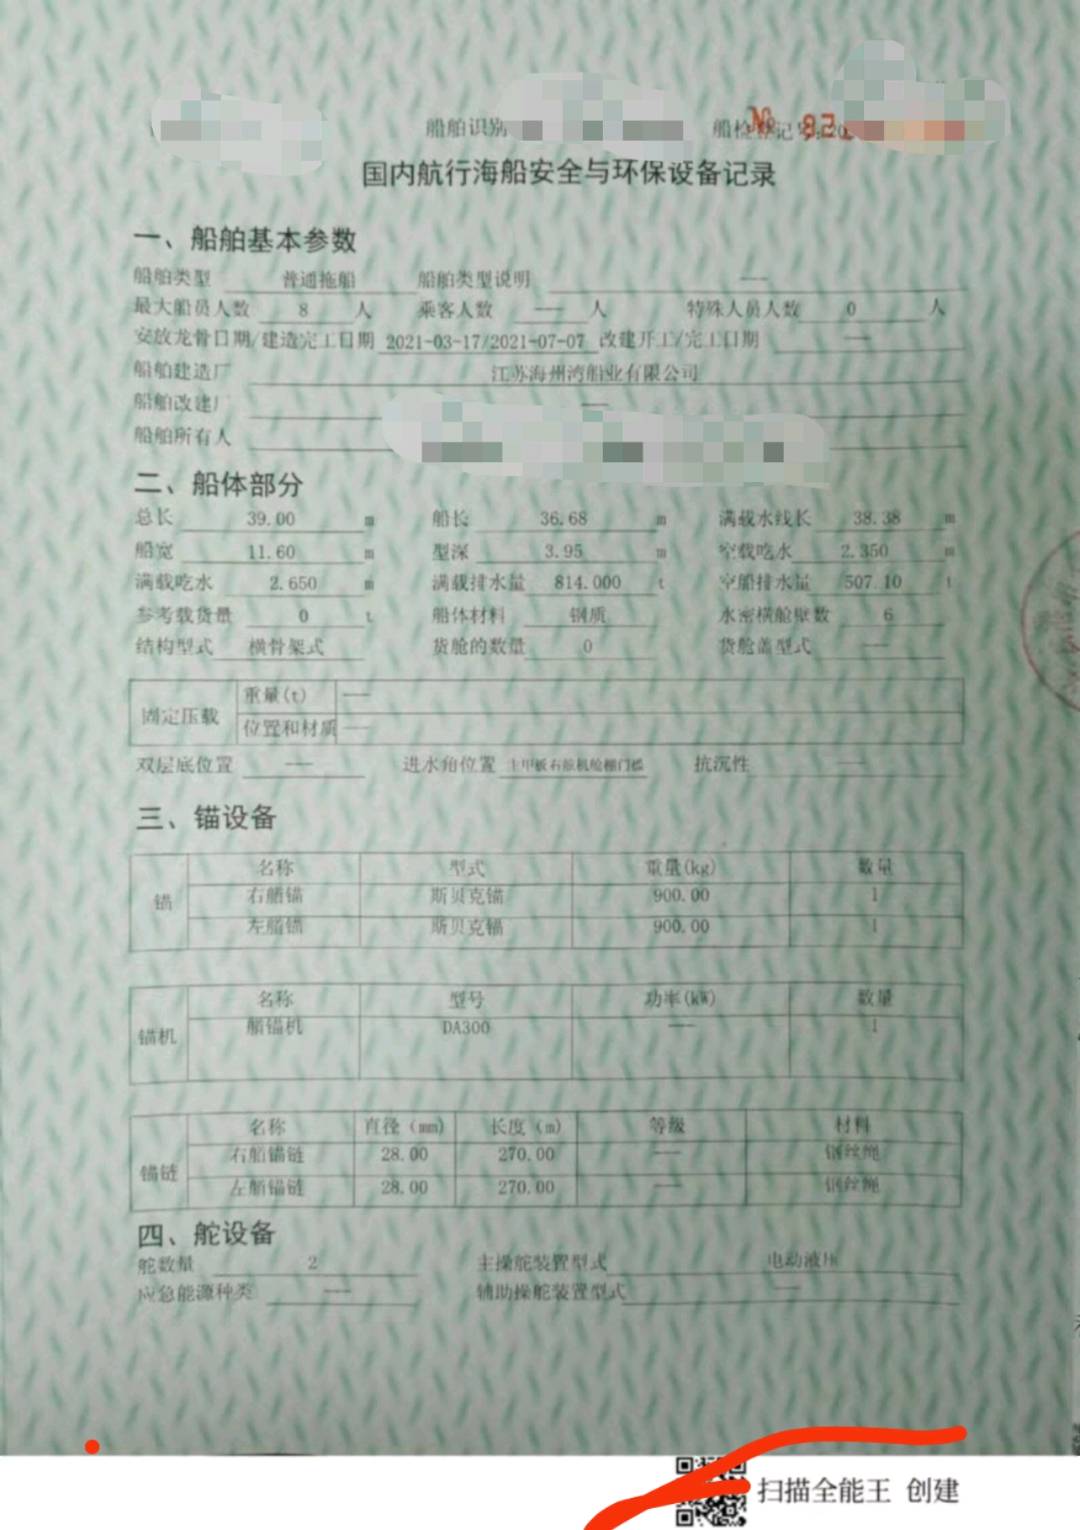 船舶识别
船检登记号:20
№ 92
国内航行海船安全与环保设备记录
一、船舶基本参数
船舶类型 普通拖船 船舶类型说明 ---
最大船员人数 8 人 乘客人数 --- 人 特殊人员人数 0 人
安放龙骨日期/建造完工日期 2021-03-17/2021-07-07 改建开工/完工日期 ---
船舶建造厂 江苏海州湾船业有限公司
船舶改建厂 ---
船舶所有人
二、船体部分
总长 39.00 m 船长 36.68 m 满载水线长 38.38 m
船宽 11.60 m 型深 3.95 m 空载吃水 2.350 m
满载吃水 2.650 m 满载排水量 814.000 t 空船排水量 507.10 t
参考载货量 0 t 船体材料 钢质 水密横舱壁数 6
结构型式 横骨架式 货舱的数量 0 货舱盖型式 ---
固定压载 重量(t) ---
位置和材质 ---
双层底位置 --- 进水角位置 主甲板右舷机舱棚门槛 抗沉性 ---
三、锚设备
锚 名称 型式 重量(kg) 数量
右艏锚 斯贝克锚 900.00 1
左艏锚 斯贝克锚 900.00 1
锚机 名称 型号 功率(kW) 数量
艏锚机 DA300 --- 1
锚链 名称 直径(mm) 长度(m) 等级 材料
右艏锚链 28.00 270.00 --- 钢丝绳
左艏锚链 28.00 270.00 --- 钢丝绳
四、舵设备
舵数量 2 主操舵装置型式 电动液压
应急能源种类 --- 辅助操舵装置型式 ---
扫描全能王 创建